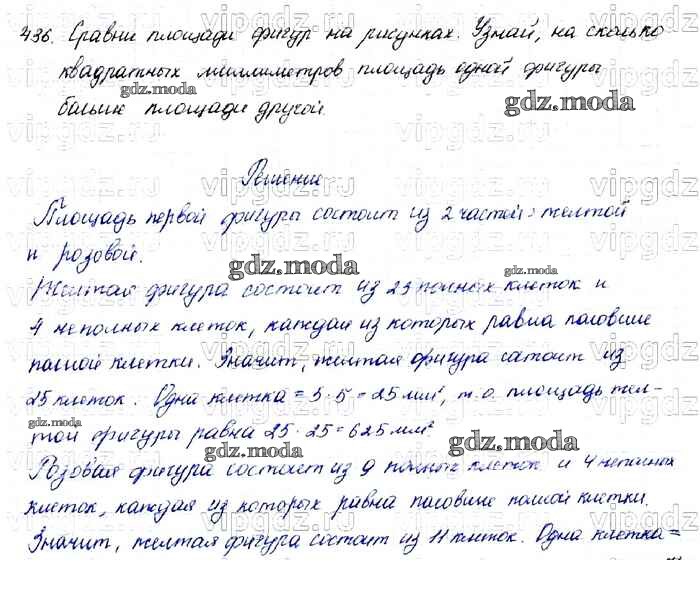 436. Сравни площади фигур на рисунках. Узнай, на сколько
квадратных миллиметров площадь одной фигуры
больше площади другой.
Решение
Площадь первой фигуры состоит из 2 частей: желтой
и розовой.
Желтая фигура состоит из 23 полных клеток и
4 неполных клеток, каждая из которых равна половине
полной клетки. Значит, желтая фигура состоит из
25 клеток. Одна клетка = 5·5 = 25 мм², т.о. площадь жел-
той фигуры равна 25·25=625 мм²
Розовая фигура состоит из 9 полных клеток и 4 неполных
клеток, каждая из которых равна половине полной клетки.
Значит, желтая фигура состоит из 11 клеток. Одна клетка =
vipgdz.ru
gdz.moda